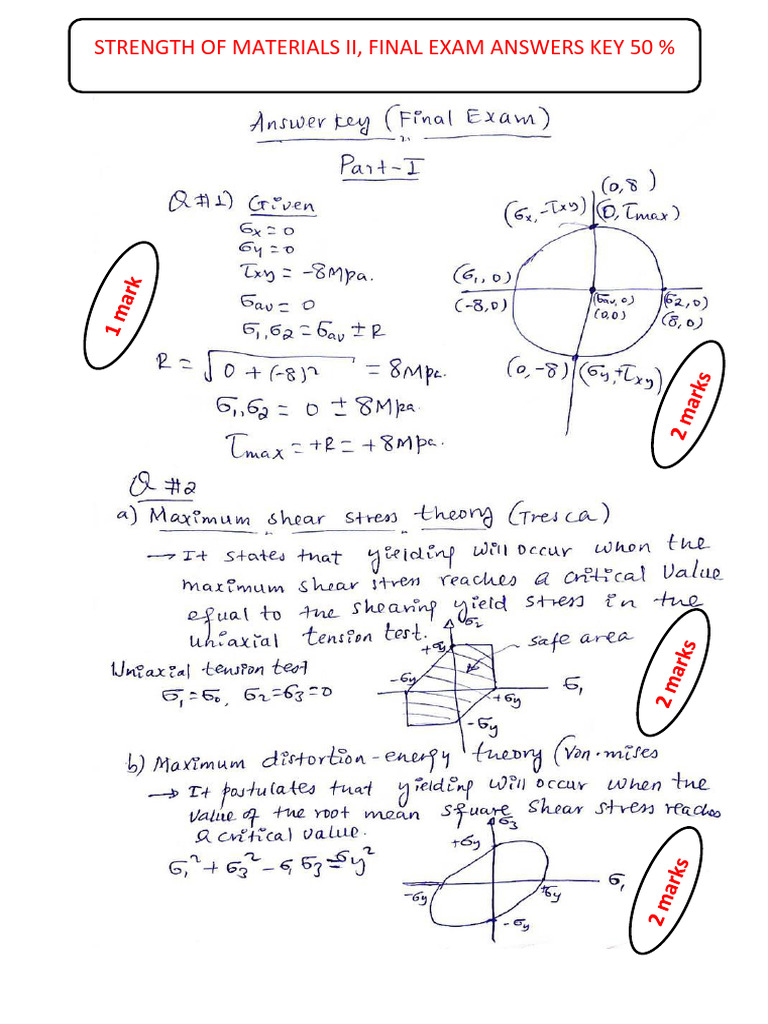 STRENGTH OF MATERIALS II, FINAL EXAM ANSWERS KEY 50 %
Answer key (Final Exam)
Part-I
Q #1) Given
σx = 0
σy = 0
τxy = -8Mpa.
σav = 0
σ1, σ2 = σav ± R
R = √0 + (-8)² = 8Mpa.
σ1, σ2 = 0 ± 8Mpa.
τmax = +R = +8Mpa.
1 mark
(0,8)
(σx, -τxy) (0, τmax)
(σ1, 0)
(-8,0)
(σav, 0)
(0,0)
(σ2, 0)
(8,0)
(0,-8) (σy, +τxy)
2 marks
Q #2
a) Maximum shear stress theory (Tresca)
→ It states that yielding will occur when the
maximum shear stress reaches a critical value
equal to the shearing yield stress in the
uniaxial tension test.
Uniaxial tension test
σ1 = σ0, σ2 = σ3 = 0
σ2
+σy
safe area
-σy
σ1
+σy
-σy
2 marks
b) Maximum distortion-energy theory (Von-mises
→ It postulates that yielding will occur when the
value of the root mean square shear stress reaches
a critical value.
σ1² + σ3² - σ1 σ3 = σy²
σ3
+σy
σ1
-σy
+σy
-σy
2 marks